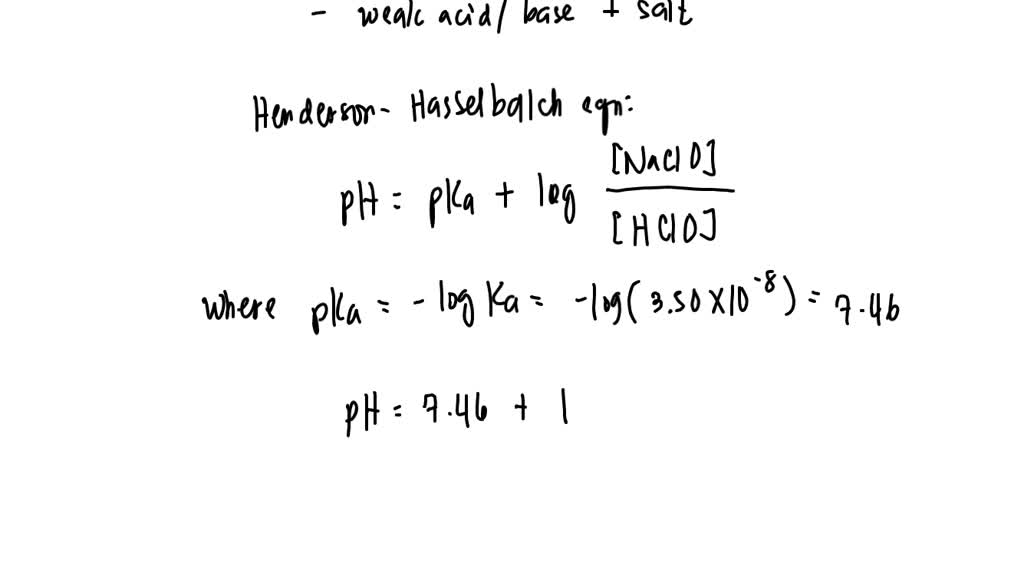 - weak acid/ base + salt
Henderson- Hasselbalch eqn:
pH = pKa + log [NaClO]
[HClO]
where pKa = - log Ka = -log( 3.50 X 10 -8 ) = 7.46
pH = 7.46 + l